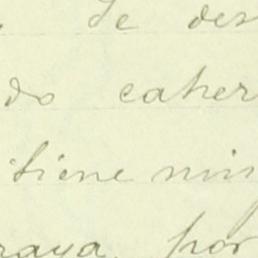 de des
do caher
tiene nin
raya, por